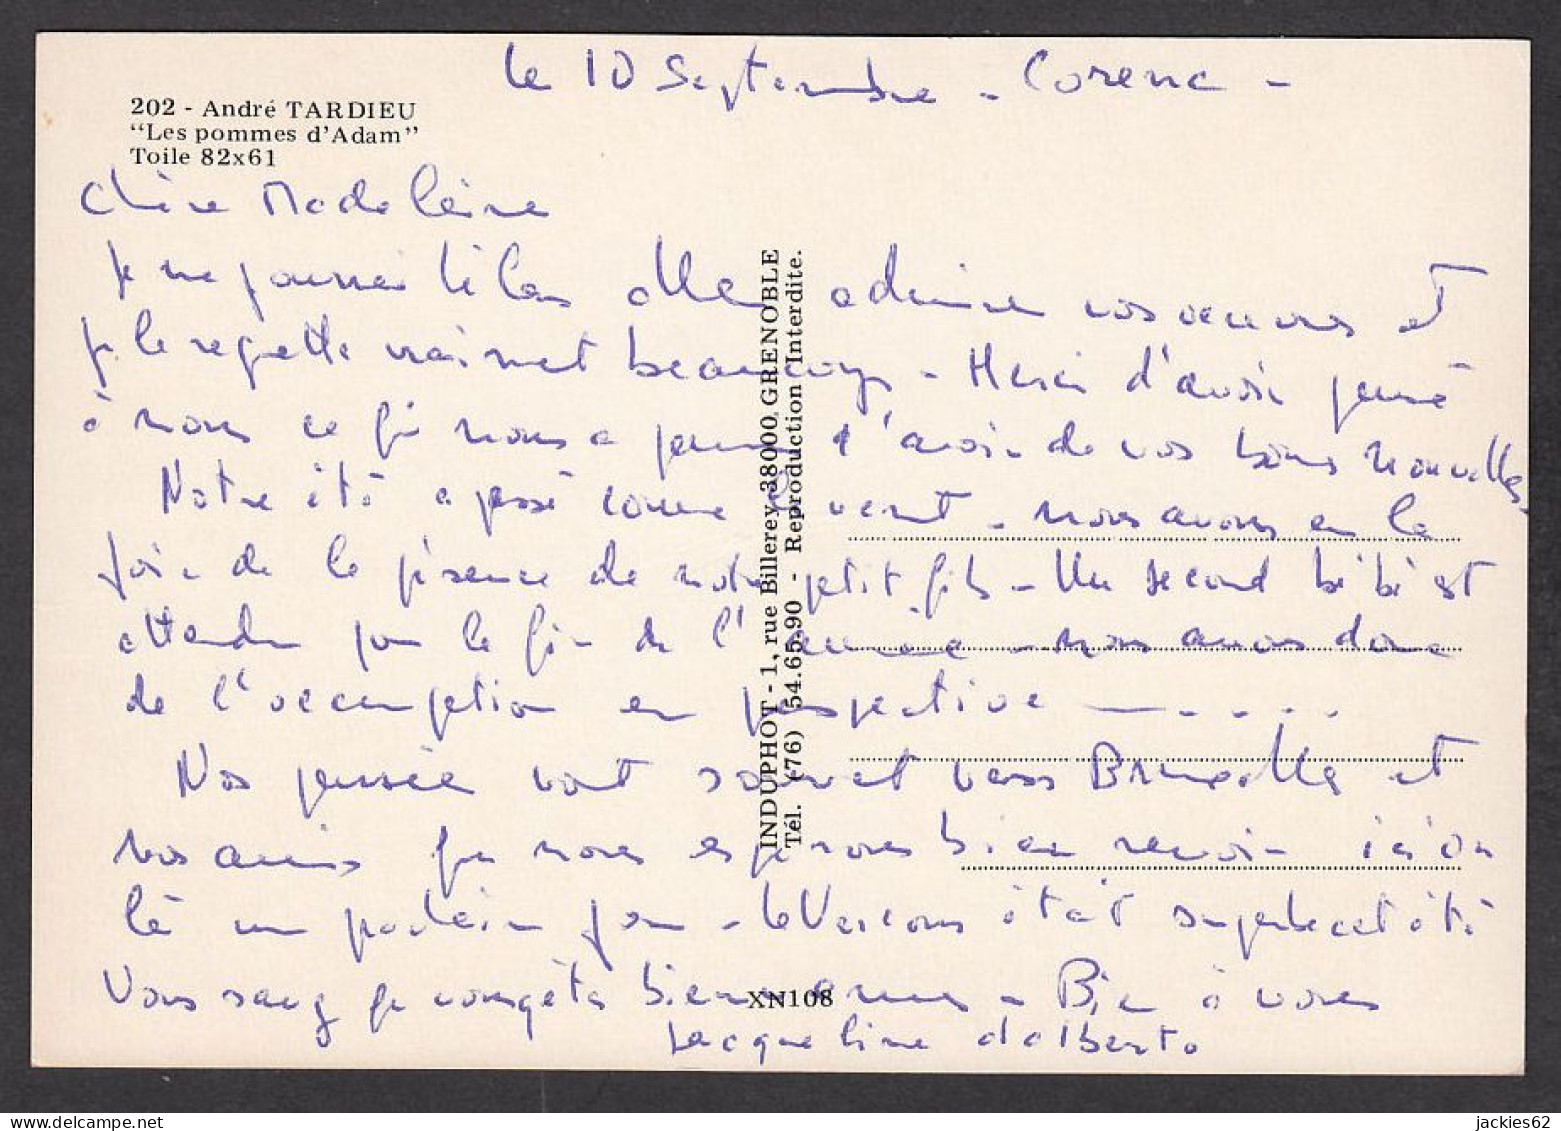 le 10 Septembre - Corenc -
202 - André TARDIEU
"Les pommes d'Adam"
Toile 82x61
Chère Madeleine
je ne pourrai hélas aller admirer vos oeuvres et
je le regrette vraiment beaucoup - Merci d'avoir pensé
à nous ce qui nous a permis d'avoir de vos bonnes nouvelles
Notre été a passé comme le vent - nous avons eu la
joie de la présence de notre petit fils - Un second bébé est
attendu pour la fin de l'année - nous avons donc
de l'occupation en perspective
Nos pensées vont souvent vers Bruxelles et
nos amis que nous espérons bien revoir ici ou
là un prochain jour - le Vercors était superbe cet été
Vous savez que vous êtes bienvenus - Bien à vous
Jacqueline dalberto
INDUPHOT - 1, rue Billerey 38000 GRENOBLE
Tél. (76) 54.65.90 - Reproduction Interdite.
XN108
jackies62